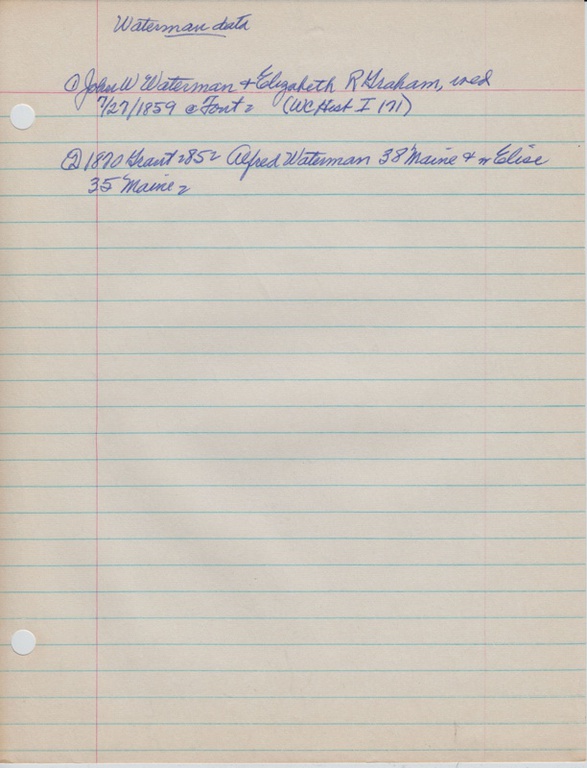 Waterman data
① John W Waterman + Elizabeth R Graham, wed
7/27/1859 @ Font (WC Hist I 171)
② 1870 Grant 285 Alfred Waterman 38 Maine + w Elise
35 Maine